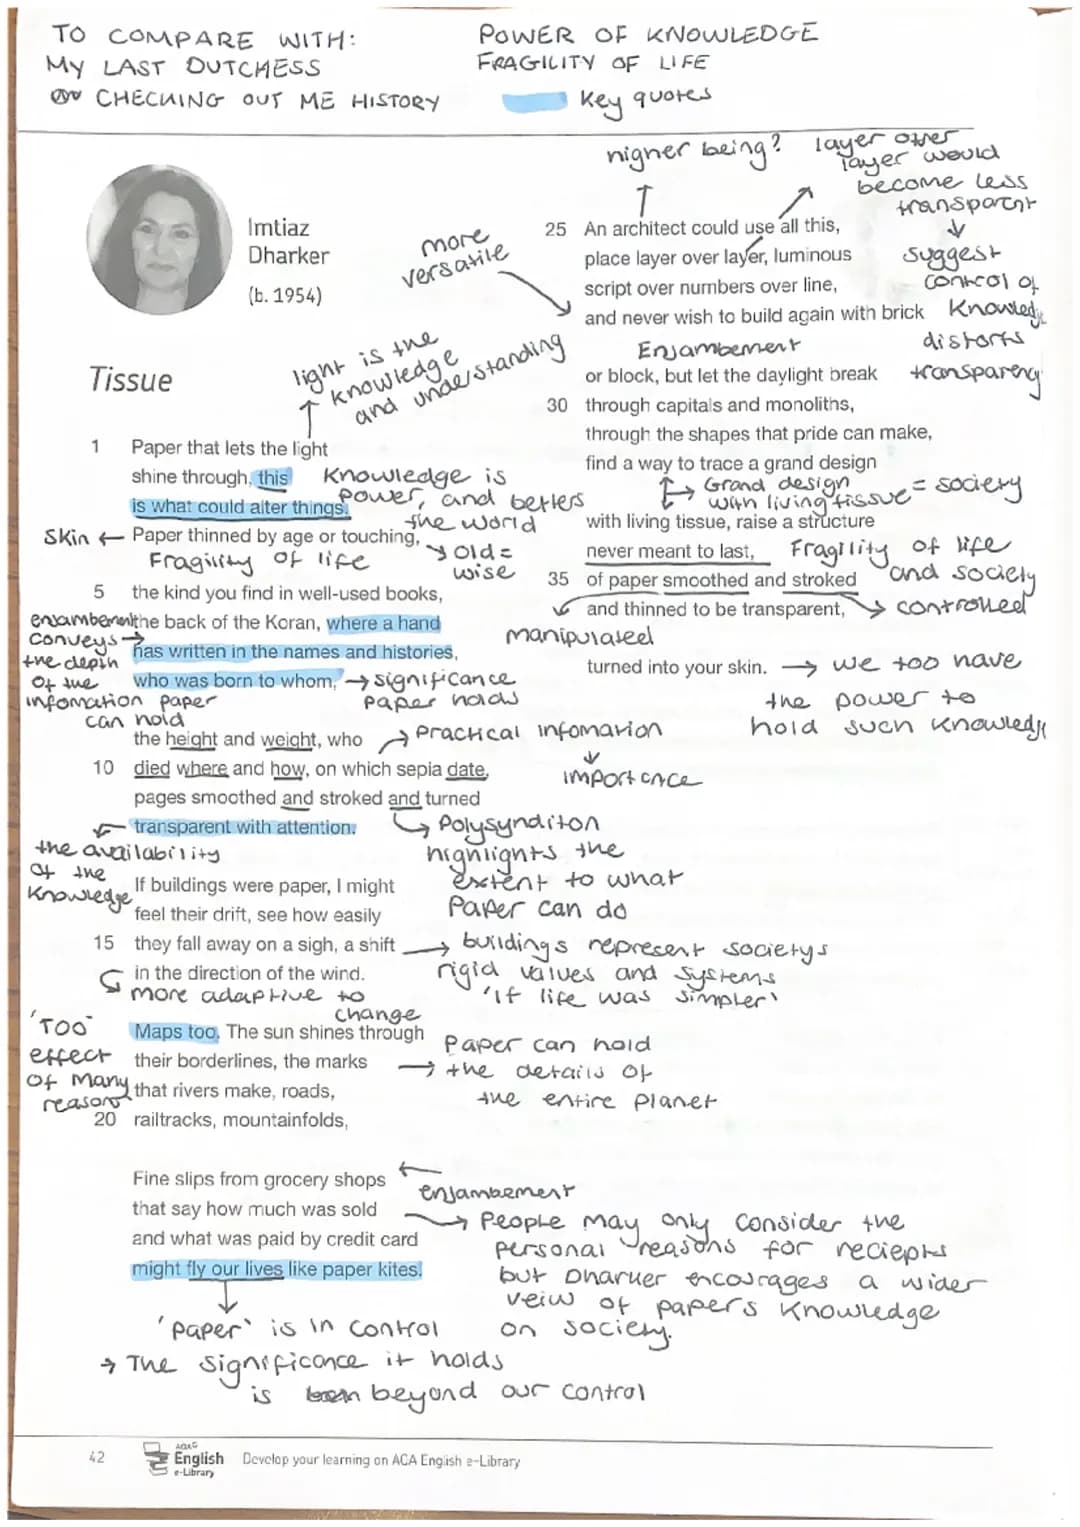 TO COMPARE WITH:
MY LAST DUTCHESS
CHECKING OUT ME HISTORY
POWER OF KNOWLEDGE
FRAGILITY OF LIFE
Key quotes
Imtiaz
Dharker
(b. 1954)
Tissue
light is the
knowledge
and understanding
1 Paper that lets the light
shine through, this
Knowledge is
is what could alter things.
power, and betters
the world
Skin ← Paper thinned by age or touching,
Fragility of life
old =
wise
5 the kind you find in well-used books,
enjambement
the back of the Koran, where a hand
conveys →
has written in the names and histories,
the depth
of the
who was born to whom, → significance
infomation paper
can hold
paper holds
the height and weight, who
→ Practical infomation
↓
importance
10 died where and how, on which sepia date,
pages smoothed and stroked and turned
transparent with attention.
the availability
of the
knowledge
Polysynditon
highlights the
extent to what
Paper can do
If buildings were paper, I might
feel their drift, see how easily
15 they fall away on a sigh, a shift
in the direction of the wind.
more adaptive to
change
→ buildings represent societys
rigid values and systems
'if life was simpler'
'TOO'
effect
of many
reasons
Maps too. The sun shines through
their borderlines, the marks
that rivers make, roads,
20 railtracks, mountainfolds,
Paper can hold
→ the details of
the entire planet
Fine slips from grocery shops
that say how much was sold
and what was paid by credit card
might fly our lives like paper kites.
enjambement
→ People may only consider the
personal reasons for reciepts
but Dharker encourages a wider
veiw of papers knowledge
on society.
'paper' is in control
→ The significance it holds
is beyond our control
higher being?
layer over
layer would
become less
transparent
↓
suggest
control of
knowledge
distorts
transparency
more
versatile
25 An architect could use all this,
place layer over layer, luminous
script over numbers over line,
and never wish to build again with brick
Enjambement
or block, but let the daylight break
30 through capitals and monoliths,
through the shapes that pride can make,
find a way to trace a grand design
Grand design
with living tissue = society
with living tissue, raise a structure
never meant to last,
Fragility of life
and society
35 of paper smoothed and stroked
and thinned to be transparent,
→ controlled
manipulated
turned into your skin. → we too have
the power to
hold such knowledge
42
AQA
English
e-Library
Develop your learning on ACA English e-Library